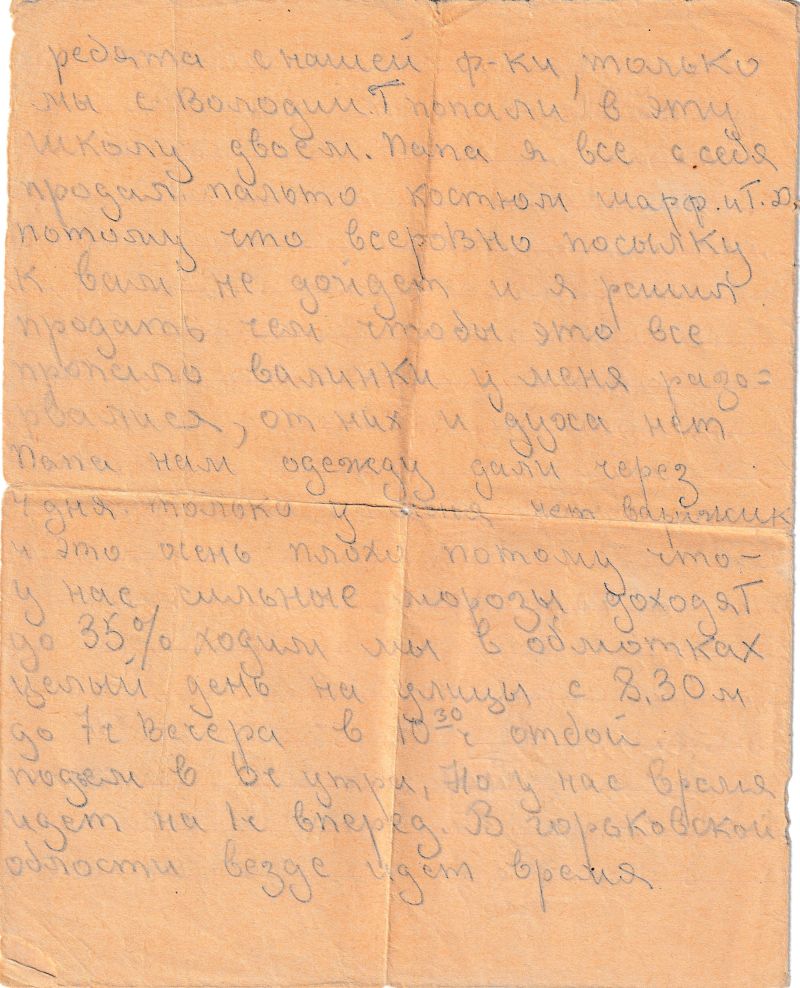 ребята с нашей ф-ки, только
мы с Володии.Т попали в эту
школу двоем. Папа я все с себя
продал пальто костюм шарф. и Т.Д.
потому что всеровно посылку
к вам не дойдет и я решил
продать чем чтобы это все
пропало валинки у меня разо=
рвалися, от них и духа нет
Папа нам одежду дали через
4 дня. только у меня нет
и это очень плохо потому что-
у нас сильные морозы доходят
до 35% ходим мы в обмотках
целый день на улицы с 8.30м
до 7ч вечера в 10 30 ч отбой.
подъем в 6ч утра, Но у нас время
идет на 1ч вперед. В горьковской
облости везде идет время